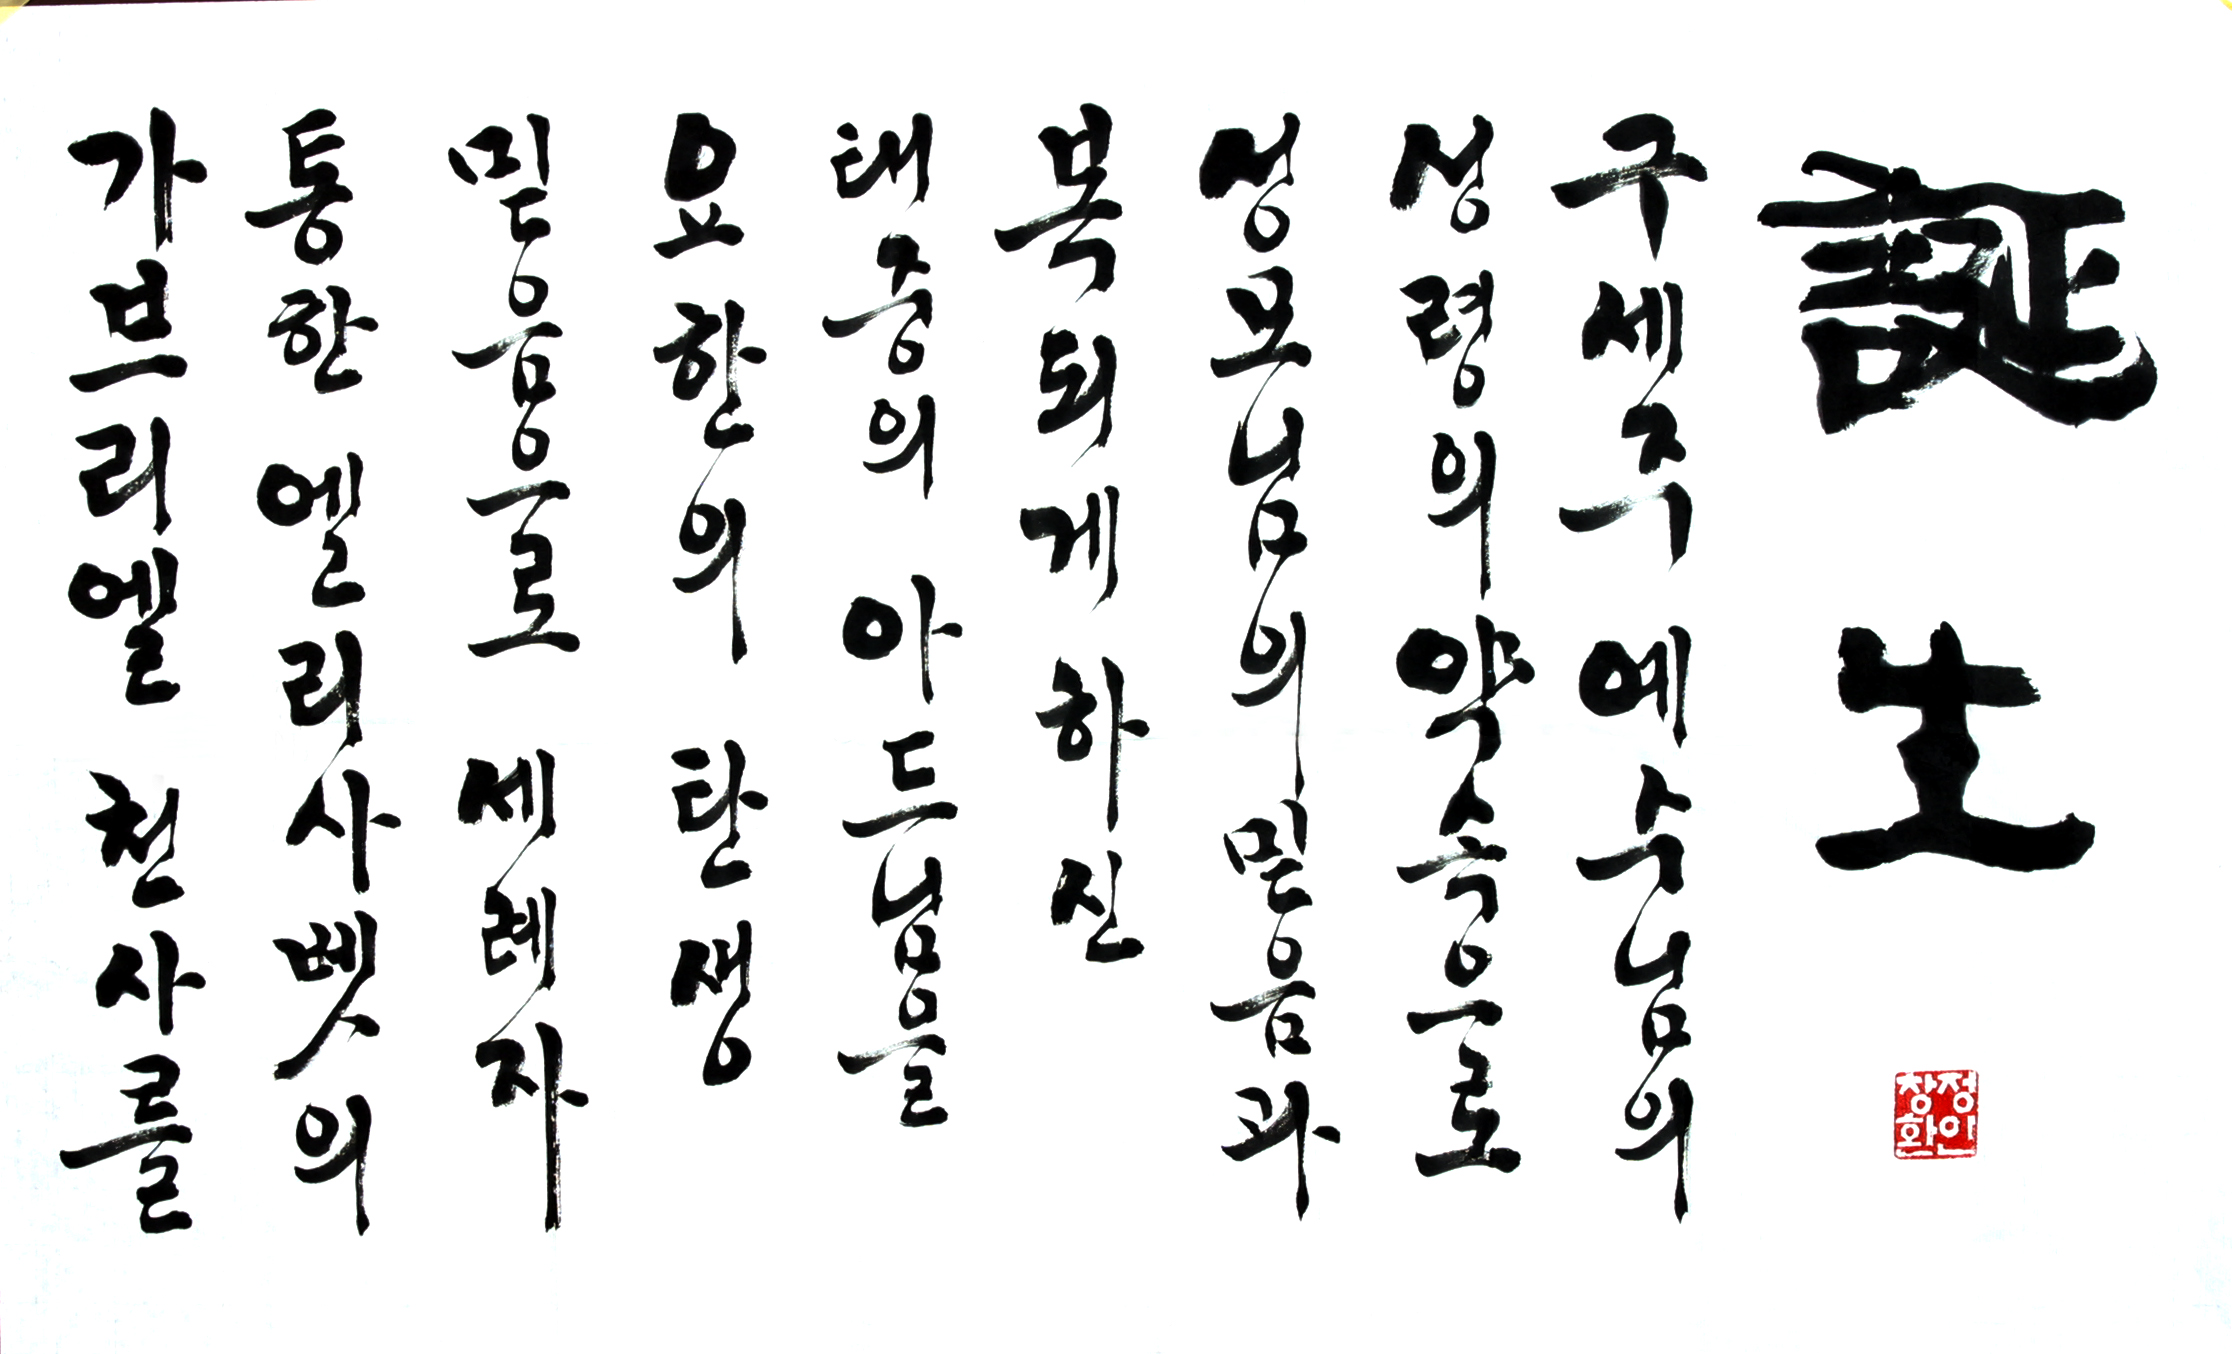 가브리엘 천사를
통한 엘리사벳의
믿음으로 세례자
요한의 탄생
태중의 아드님을
복되게 하신
성모님의 믿음과
성령의 약속으로
구세주 예수님의
誕生
정인
창환